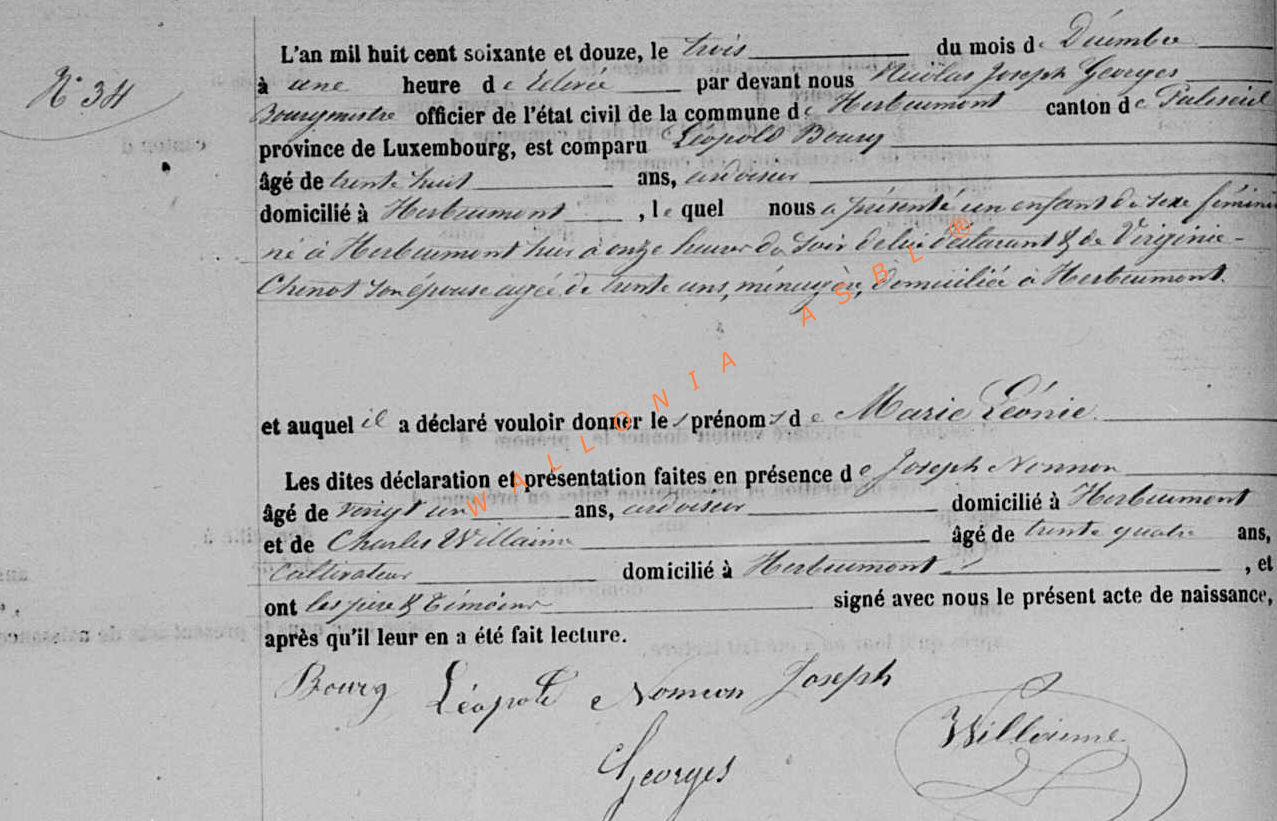 L'an mil huit cent soixante et douze, le trois du mois de Décembre
N° 34
à une heure de relevée par devant nous Nicolas Joseph Georges
Bourgmestre officier de l'état civil de la commune de Herbeumont canton de Paliseul
province de Luxembourg, est comparu Léopold Bourg
âgé de trente huit ans, ardoisier
domicilié à Herbeumont, le quel nous a présenté un enfant de sexe féminin
né à Herbeumont hier à onze heures du soir de lui déclarant & de Virginie
Chenot son épouse agée de trente ans, ménagère, domiciliée à Herbeumont.
et auquel il a déclaré vouloir donner les prénoms de Marie Léonie
Les dites déclaration et présentation faites en présence de Joseph Nonnon
âgé de vingt un ans, ardoisier domicilié à Herbeumont
et de Charles Willaime âgé de trente quatre ans,
Cultivateur domicilié à Herbeumont, et
ont les père & témoins signé avec nous le présent acte de naissance,
après qu'il leur en a été fait lecture.
Bourg Léopold Nonnon Joseph
Willaime
Georges
WALLONIA ASBL ®